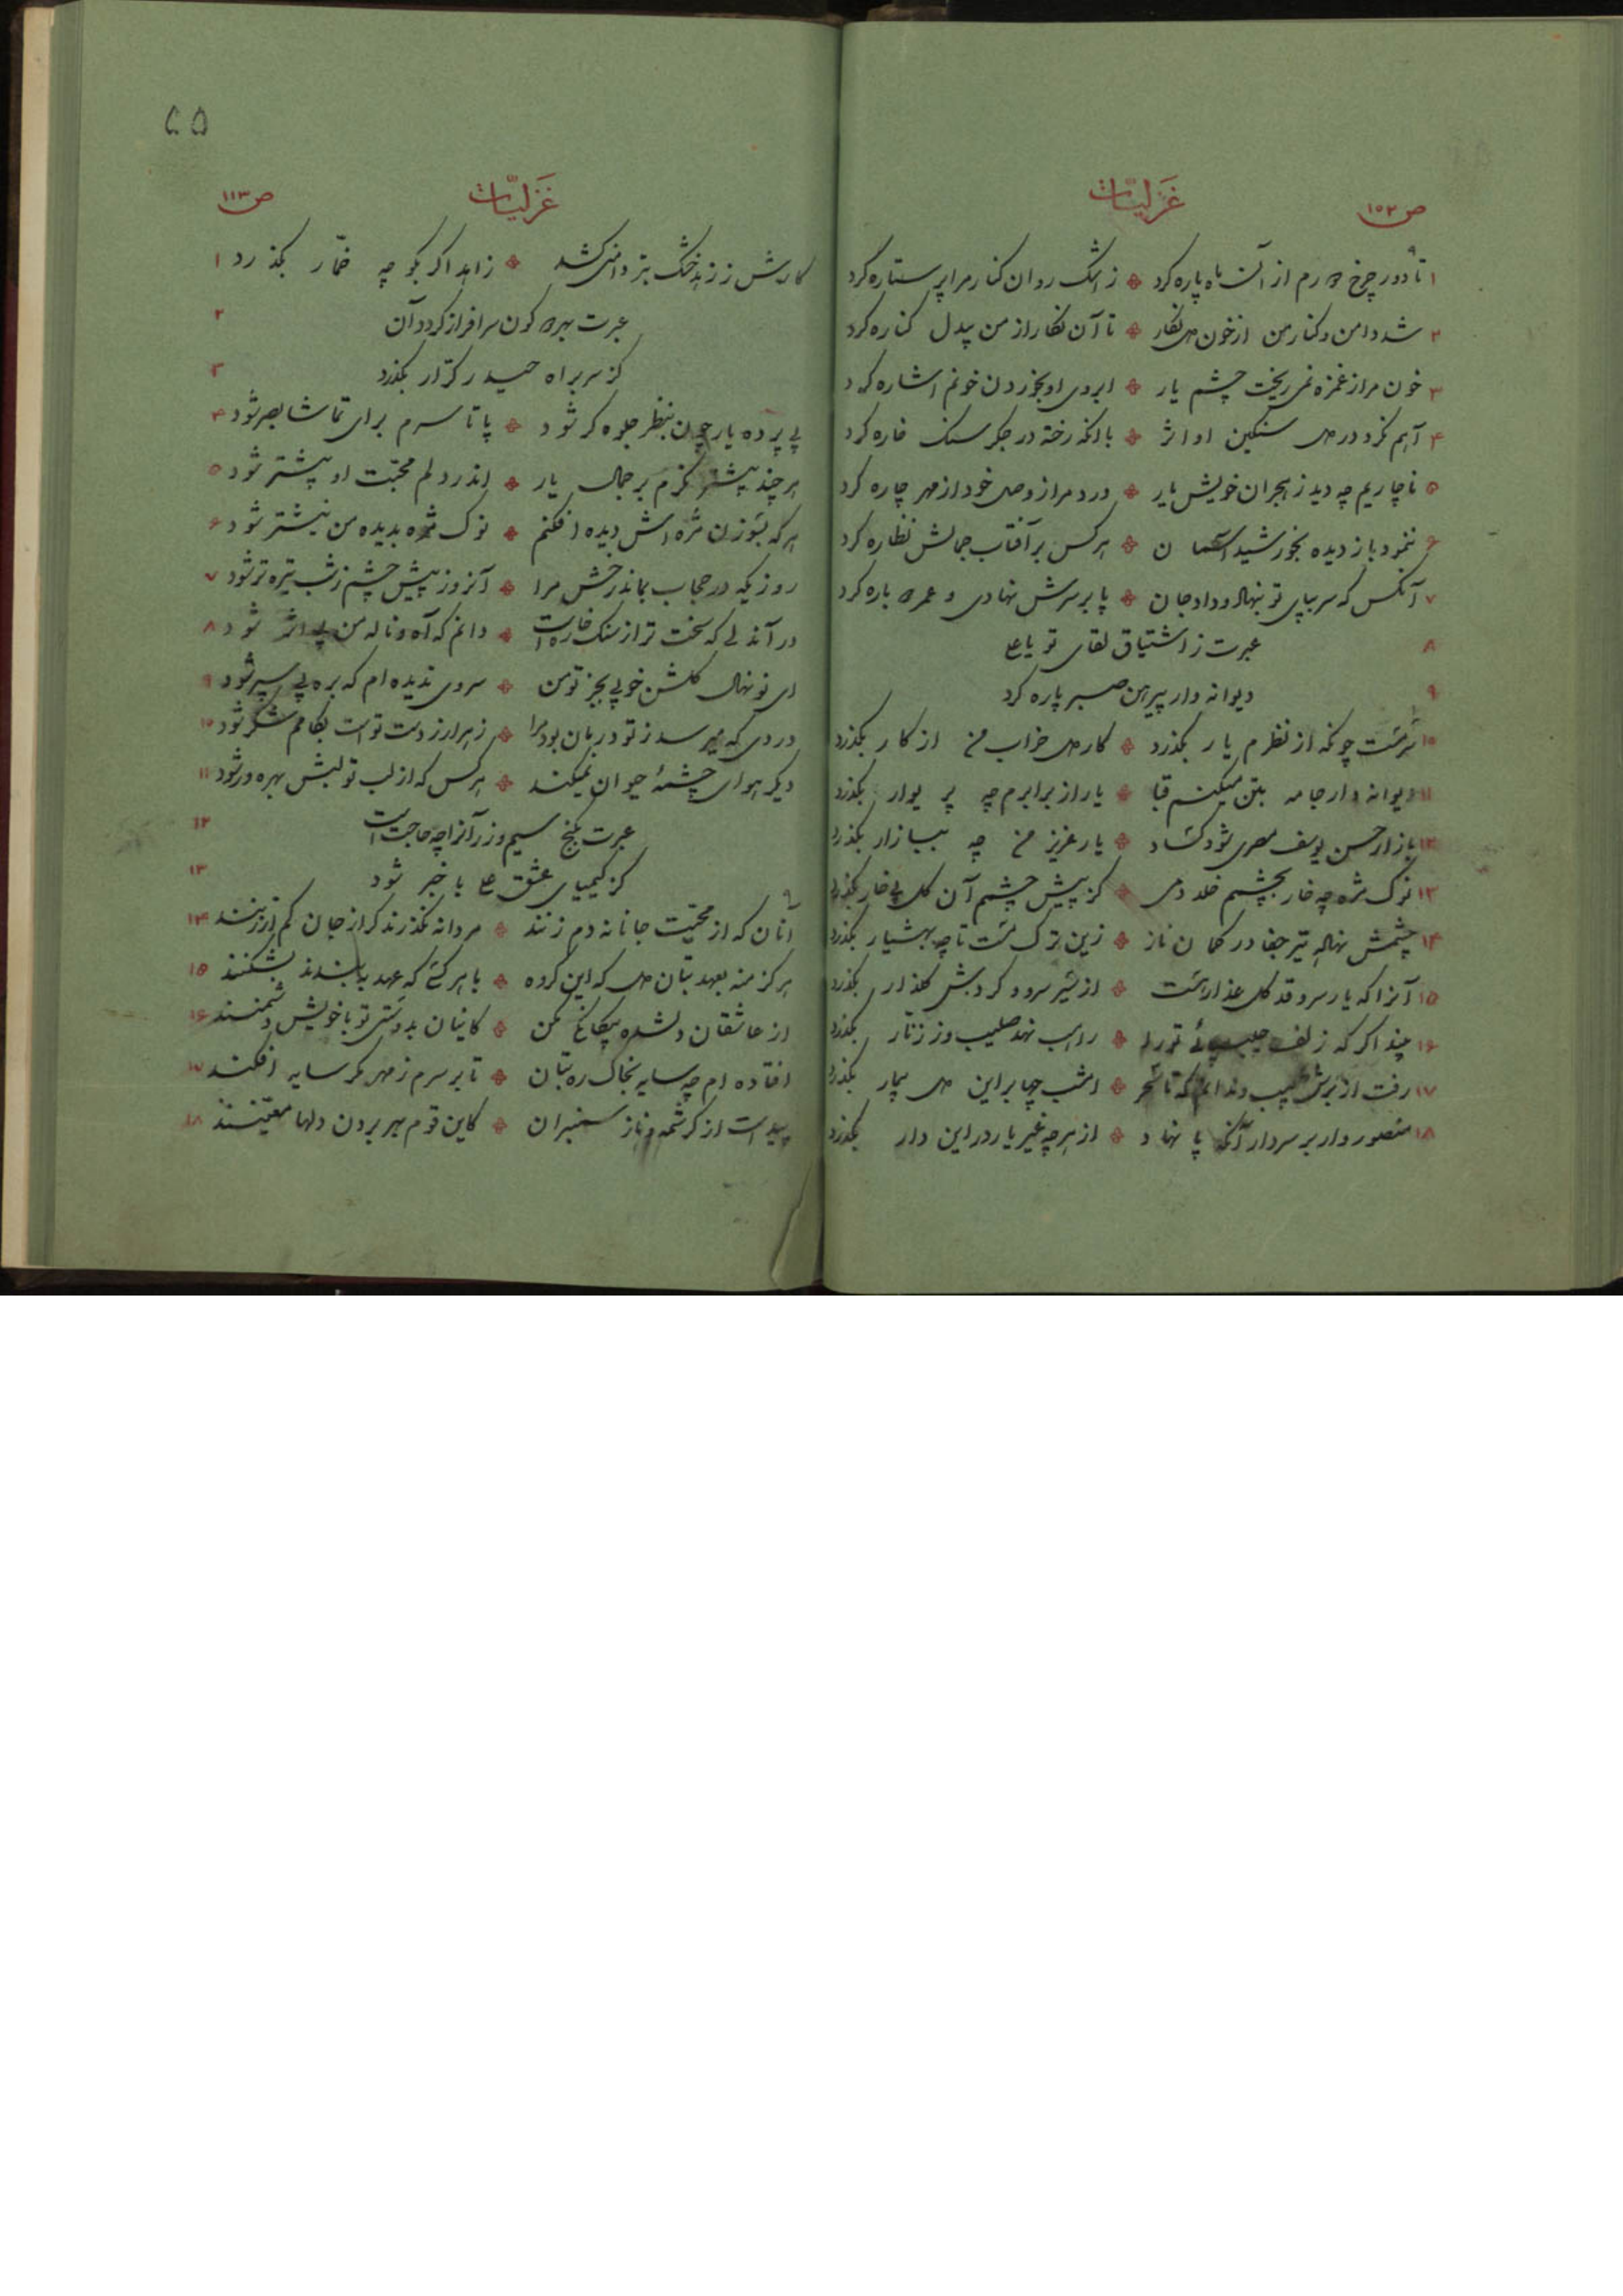 غزلیّات
ص ۱۵۲
۱ تا دور چرخ دورم از آن ماه پاره کرد ز اشک روان کنار مرا پر ستاره کرد
۲ شد دامن و کنار من از خون دل نگار تا آن نگار از من بیدل کناره کرد
۳ خون مرا ز غمزه نمی‌ریخت چشم یار ابروی او بخوردن خونم اشاره کرد
۴ آهم نکرد در دل سنگین او اثر با آنکه رخنه در جگر سنگ خاره کرد
۵ ناچاریم چه دید ز هجران خویش یار درد مرا ز وصل خود از مهر چاره کرد
۶ ننمود باز دیده بخورشید آسمان هر کس بر آفتاب جمالش نظاره کرد
۷ آنکس که سر بپای تو بنهاد و داد جان پا بر سرش نهادی و عمر دوباره کرد
۸ عبرت ز اشتیاق لقای تو یا علی
۹ دیوانه وار پیرهن صبر پاره کرد
۱۰ سرمست چونکه از نظرم یار بگذرد کار دل خراب من از کار بگذرد
۱۱ دیوانه وار جامه بتن میکنم قبا یار از برابرم چه پریوار بگذرد
۱۲ بازار حسن یوسف مصری شود کساد یار عزیز من چه ببازار بگذرد
۱۳ نوک مژه چه خار بچشمم خلد دمی کز پیش چشمم آن گل بی خار بگذرد
۱۴ چشمش نهاده تیر جفا در کمان ناز زین ترک مست تا چه بهشیار بگذرد
۱۵ آنرا که یار سرو قد گل عذار هست از سیر سرو و گردش گلزار بگذرد
۱۶ بیند اگر که زلف چلیپای تو را راهب نهد صلیب و ز زنّار بگذرد
۱۷ رفت از برش طبیب و ندانم که تا سحر امشب چها بر این دل بیمار بگذرد
۱۸ منصور وار بر سر دار آنکه پا نهاد از هر چه غیر یار در این دار بگذرد
غزلیّات
ص ۱۱۳
کارش ز زهد خشک بتر دامنی کشد زاهد اگر بکوچه خمّار بگذرد ۱
عبرت بهر دو کون سرافراز گردد آن ۲
کز سر براه حیدر کرّار بگذرد ۳
بی پرده یار چون بنظر جلوه گر شود پا تا سرم برای تماشا بصر شود ۴
هر چند بیشتر نگرم بر جمال یار اندر دلم محبّت او بیشتر شود ۵
هر گه بسوزن مژه اش دیده افکنم نوک مژه بدیده من نیشتر شود ۶
روزیکه در حجاب بماند رخش مرا آنروز پیش چشم ز شب تیره تر شود ۷
در آن دلی که سخت تر از سنگ خاره است دانم که آه و ناله من بی اثر شود ۸
ای نونهال گلشن خوبی بجز تو من سروی ندیده ام که بره پی سپر شود ۹
دردی که میرسد ز تو درمان بود مرا زهر ار ز دست تو است بکامم شکر شود ۱۰
دیگر هوای چشمهٔ حیوان نمیکند هر کس که از لب تو لبش بهره ور شود ۱۱
عبرت بگنج سیم و زر آنرا چه حاجت است ۱۲
کز کیمیای عشق علی با خبر شود ۱۳
آنان که از محبّت جانانه دم زنند مردانه نگذرند گر از جان کم از زنند ۱۴
هرگز منه بعهد بتان دل که این گروه با هر کسی که عهد ببندند بشکنند ۱۵
از عاشقان دلشده بیگانگی مکن کاینان بدوستی تو با خویش دشمنند ۱۶
افتاده ام چه سایه بخاک ره بتان تا بر سرم ز مهر مگر سایه افکنند ۱۷
پیداست از کرشمه و ناز سمنبران کاین قوم بهر بردن دلها معیّنند ۱۸